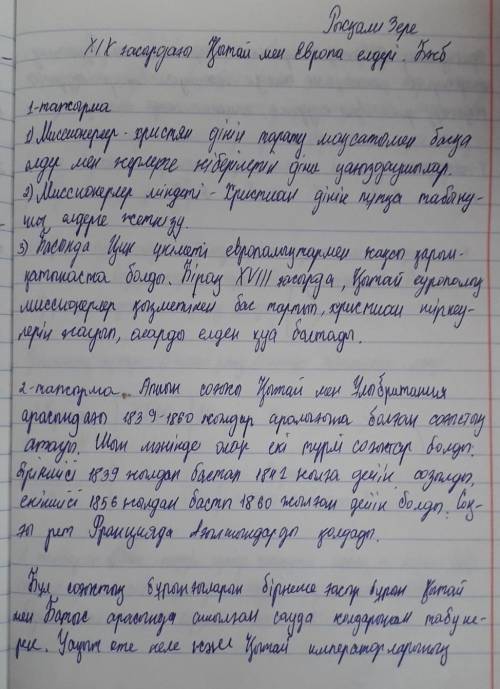 Рысқали Зере
XIX ғасырдағы Қытай мен Европа елдері. Бжб
1-тапсырма
1) Миссионерлер - христян дінін тарату мақсатомен басқа
елдер мен жерлерге жіберілетін діни уағыздаушылар.
2) Миссионерлер міндеті - Христиан дінін пұтқа табыну-
шы елдерге жеткізу.
3) Басында Цин үкіметі европалықтармен жақсы қарым-
қатынаста болды. Бірақ XVIII ғасырда, Қытай еуропалық
миссионерлер қызметінен бас тартып, христиан шіркеу-
лерін жауып, оларды елден қуа бастады.
2-тапсырма. Апиын соғысы Қытай мен Ұлыбритания
арасындағы 1839-1860 жылдар аралығына болған соғыстың
атауы. Шын мәнінде олар екі түрлі соғыстар болды.
Біріншісі 1839 жылдан бастап 1842 жылға дейін созылды,
екіншісі 1856 жылдан басты 1860 жылған дейін болды. Соң-
ғы рет Францияда ағылшындарды қолдады.
Бұл соғыстың бұрынғыларын бірнеше ғасыр бұрын Қытай
мен Батыс арасында ашылған сауда жолдарынан табу ке-
рек. Уақыт өте келе және Қытай императорларының